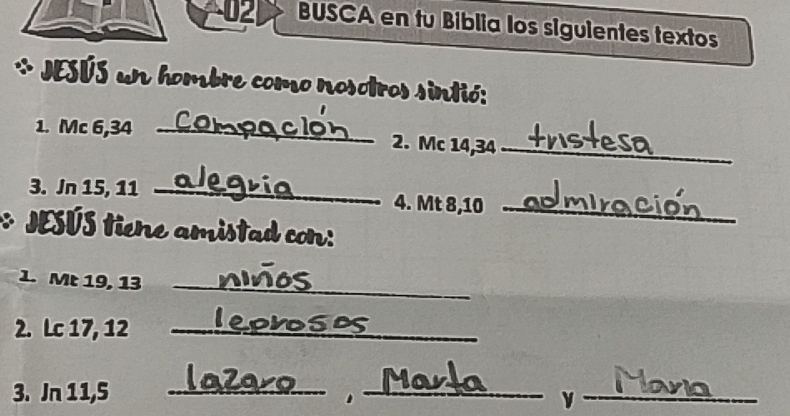 02 BUSCA en tu Biblia los siguientes textos
JESÚS un hombre como nosotros sintió:
1. Mc 6,34 compación 2. Mc 14,34 tristesa
3. Jn 15, 11 alegria 4. Mt 8,10 admiración
JESÚS tiene amistad con:
1. Mt 19, 13 niños
2. Lc 17, 12 leprosos
3. Jn 11,5 lazaro, Marta y Maria